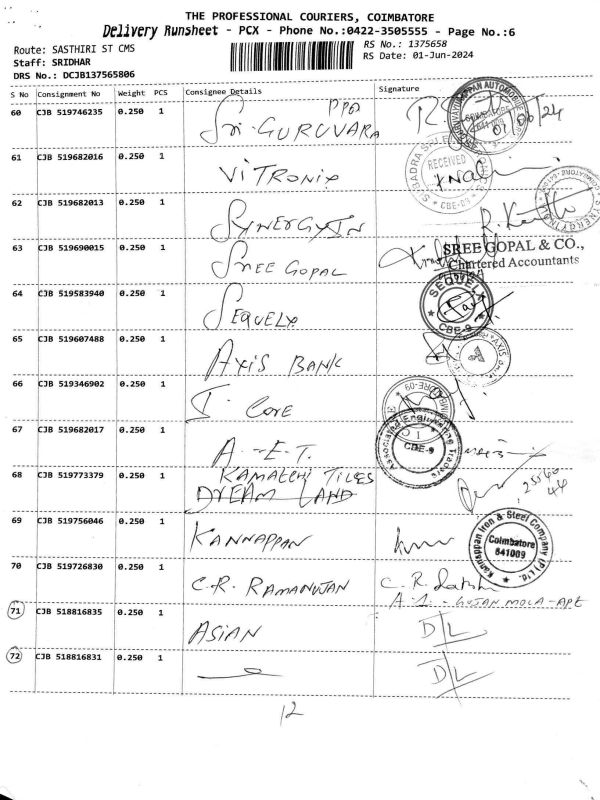 THE PROFESSIONAL COURIERS, COIMBATORE
Delivery Runsheet - PCX - Phone No.:0422-3505555 - Page No.:6
Route: SASTHIRI ST CMS
RS No.: 1375658
Staff: SRIDHAR
RS Date: 01-Jun-2024
DRS No.: DCJB137565806
S No Consignment No Weight PCS Consignee Details Signature
60 CJB 519746235 0.250 1 Sri GURUVARA PPA
01/06/24
61 CJB 519682016 0.250 1 VITRONIX
RECEIVED
CBE-09
62 CJB 519682013 0.250 1 SYNERGYIN
63 CJB 519690015 0.250 1 SREE GOPAL
SREE GOPAL & CO.,
Chartered Accountants
64 CJB 519583940 0.250 1 SEQUELX
SEQUELX
CBE-9
65 CJB 519607488 0.250 1 AXIS BANK
AXIS
66 CJB 519346902 0.250 1 I CORE
67 CJB 519682017 0.250 1 A.-E.T.
Associated Engineering Traders
CBE-9
68 CJB 519773379 0.250 1 KAMATCHI TILES
DREAM LAND
69 CJB 519756046 0.250 1 KANNAPPAN
Kannappan Iron & Steel Company (P) Ltd.
Coimbatore
641009
70 CJB 519726830 0.250 1 C.R. RAMANUJAN C. R.
71 CJB 518816835 0.250 1 ASIAN D/L
72 CJB 518816831 0.250 1 D/L
12